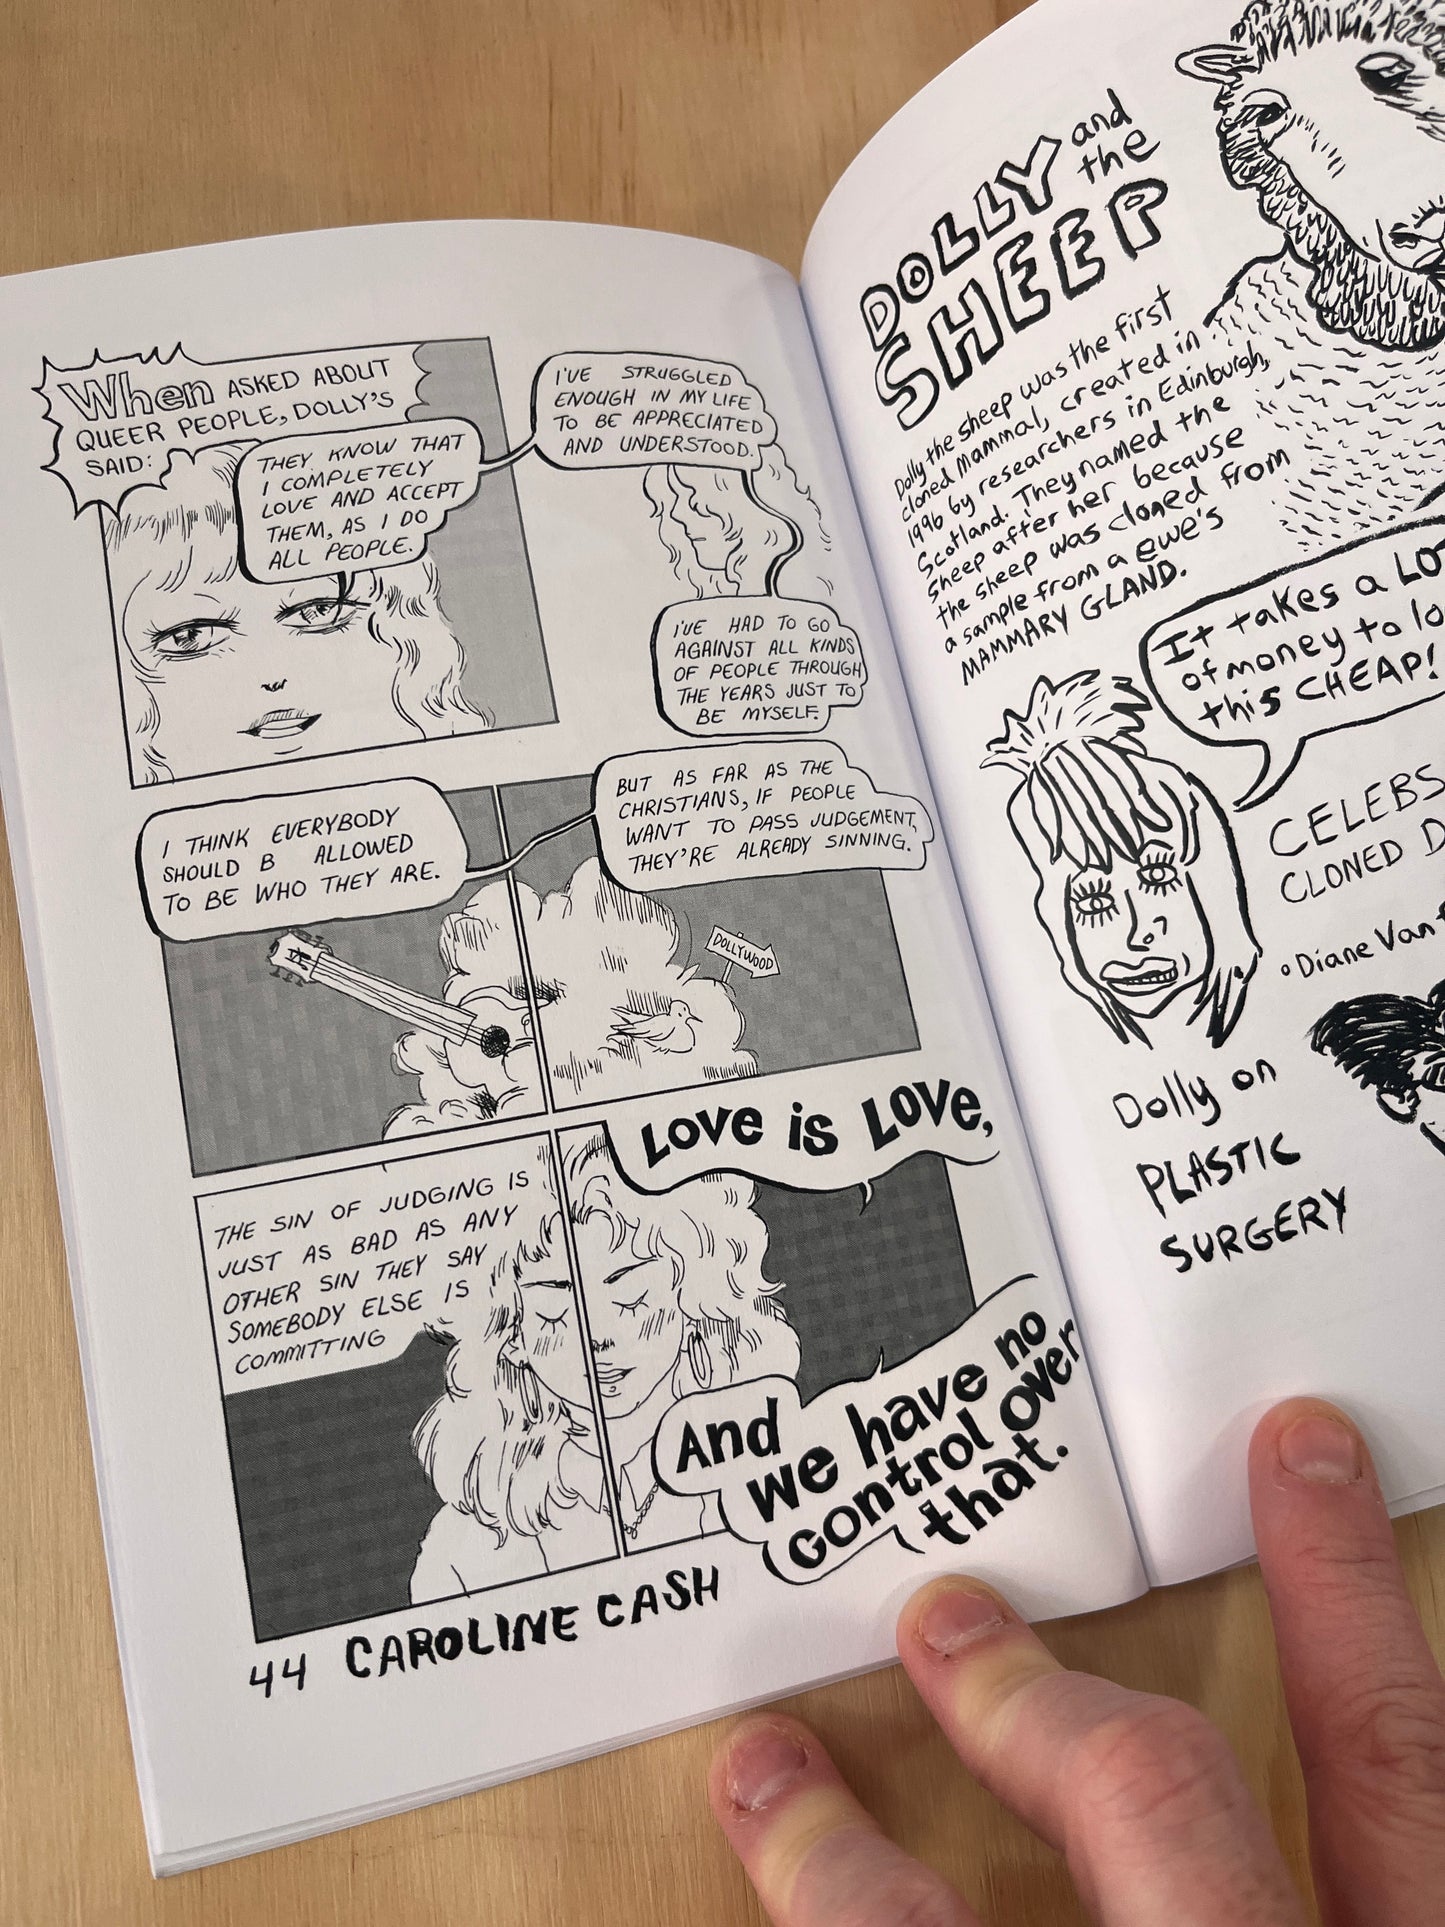 When ASKED ABOUT
QUEER PEOPLE, DOLLY'S
SAID:
THEY KNOW THAT
I COMPLETELY
LOVE AND ACCEPT
THEM, AS I DO
ALL PEOPLE.
I'VE STRUGGLED
ENOUGH IN MY LIFE
TO BE APPRECIATED
AND UNDERSTOOD.
I'VE HAD TO GO
AGAINST ALL KINDS
OF PEOPLE THROUGH
THE YEARS JUST TO
BE MYSELF.
I THINK EVERYBODY
SHOULD B ALLOWED
TO BE WHO THEY ARE.
BUT AS FAR AS THE
CHRISTIANS, IF PEOPLE
WANT TO PASS JUDGEMENT,
THEY'RE ALREADY SINNING.
DOLLYWOOD
THE SIN OF JUDGING IS
JUST AS BAD AS ANY
OTHER SIN THEY SAY
SOMEBODY ELSE IS
COMMITTING
LOVE is LOVE,
And
we have no
control over
that.
44 CAROLINE CASH
DOLLY and
the
SHEEP
Dolly the sheep was the first
cloned mammal, created in
1996 by researchers in Edinburgh,
Scotland. They named the
sheep after her because
the sheep was cloned from
a sample from a ewe's
MAMMARY GLAND.
It takes a LOT
of money to lo
this CHEAP!
CELEBS
CLONED D
• Diane Von
Dolly on
PLASTIC
SURGERY